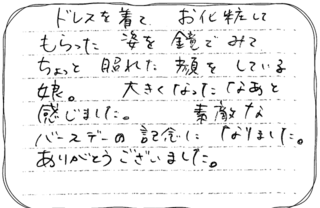 ドレスを着て、お化粧して
もらった姿を鏡でみて
ちょっと照れた顔をしている
娘。大きくなったなあと
感じました。素敵な
バースデーの記念になりました。
ありがとうございました。